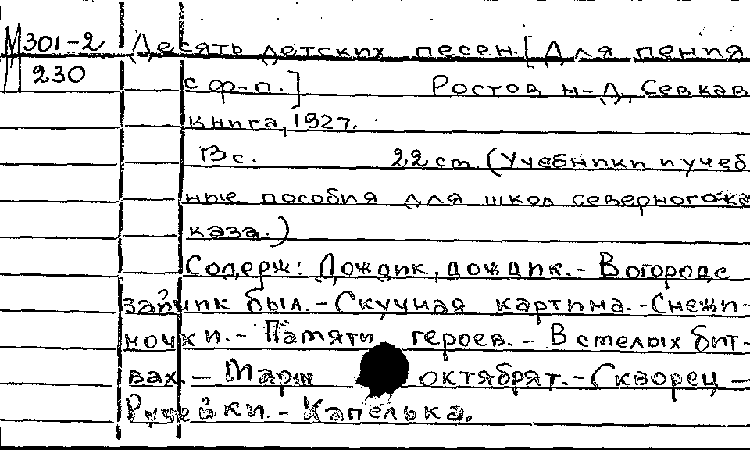 М301-2 Десять детских песен. [Для пения
230 с ф-п.] Ростов н-Д, Севкав
книга, 1927.
13 с. 22 см (Учебники и учеб
ные пособия для школ северногокав
каза.)
Содерж: Дождик, дождик. - В огороде
зайчик был. - Скучная картина. - Снежи-
ночки. - Памяти героев. - В смелых бит-
вах. - Марш октябрят. - Скворец -
Ручейки. - Капелька.